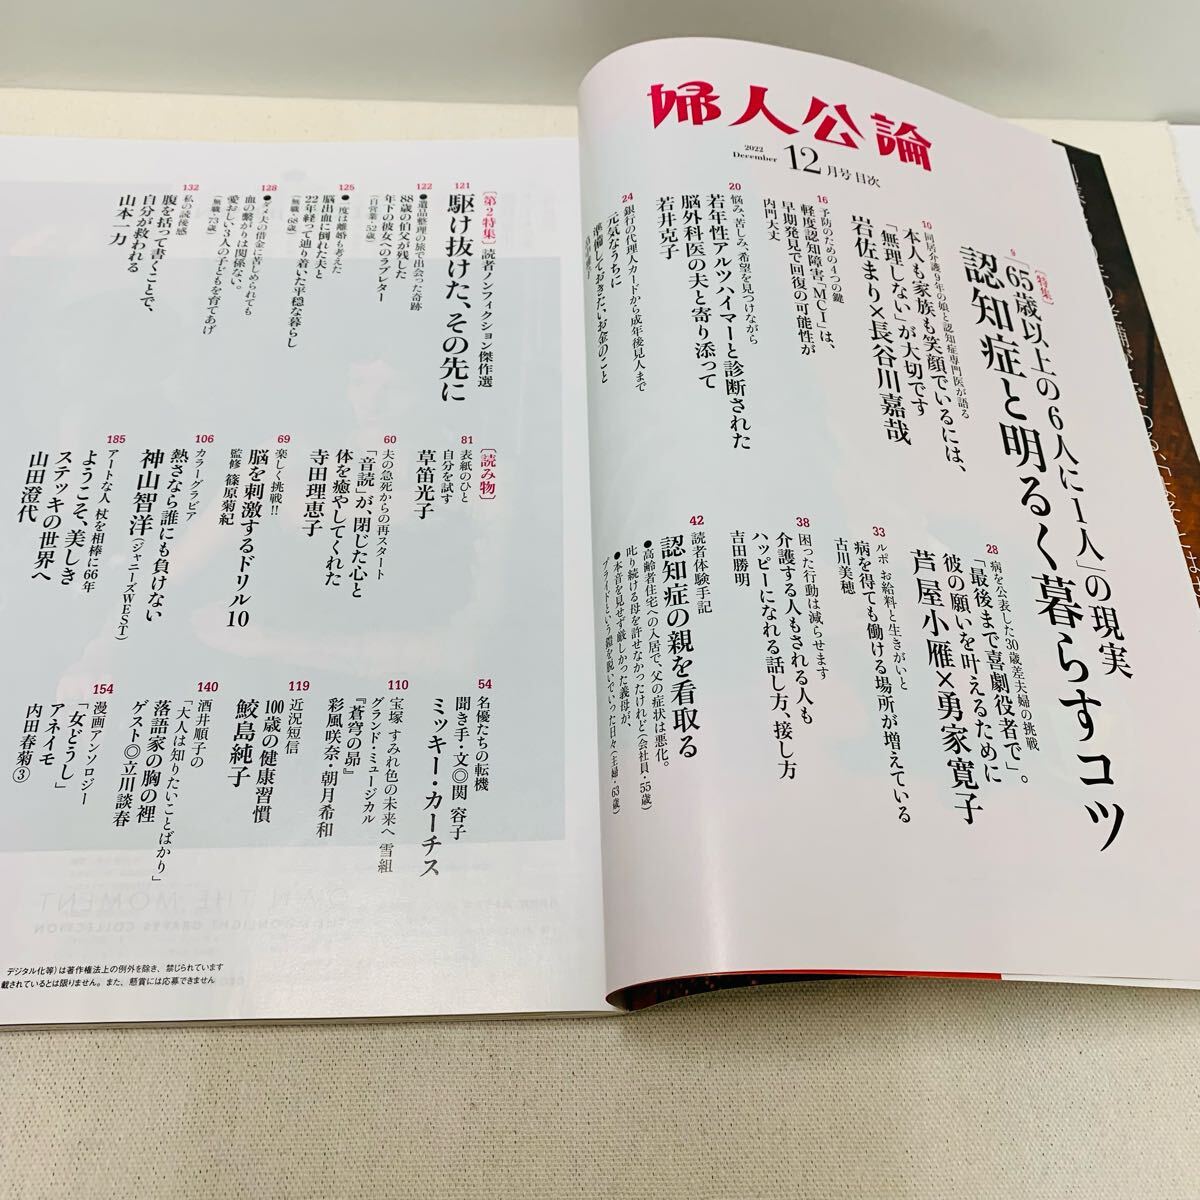 婦人公論
2022
December
12月号目次
［特集］
9
「65歳以上の6人に1人」の現実
認知症と明るく暮らすコツ
10
同居介護9年の娘と認知症専門医が語る
本人も家族も笑顔でいるには、
「無理しない」が大切です
岩佐まり×長谷川嘉哉
16
予防のための4つの鍵
軽度認知障害「MCI」は、
早期発見で回復の可能性が
内門大丈
20
悩み、苦しみ、希望を見つけながら
若年性アルツハイマーと診断された
脳外科医の夫と寄り添って
若井克子
24
銀行の代理人カードから成年後見人まで
元気なうちに
準備しておきたい、お金のこと
28
病を公表した30歳差夫婦の挑戦
「最後まで喜劇役者で」。
彼の願いを叶えるために
芦屋小雁×勇家寛子
33
ルポ お給料と生きがいと
病を得ても働ける場所が増えている
古川美穂
38
困った行動は減らせます
介護する人もされる人も
ハッピーになれる話し方、接し方
吉田勝明
42
読者体験手記
認知症の親を看取る
●高齢者住宅への入居で、父の症状は悪化。
叱り続ける母を許せなかったけれど（会社員・55歳）
●本音を見せず厳しかった義母が、
プライドという鎧を脱いでいった日々（主婦・63歳）
［第2特集］読者ノンフィクション傑作選
121
駆け抜けた、その先に
122
●遺品整理の旅で出会った奇跡
88歳の伯父が残した
年下の彼女へのラブレター
（自営業・52歳）
125
●一度は離婚も考えた
脳出血に倒れた夫と
22年経って辿り着いた平穏な暮らし
（無職・68歳）
128
●ダメ夫の借金に苦しめられても
血の繋がりは関係ない。
愛おしい3人の子どもを育てあげ
（無職・73歳）
132
私の読後感
腹を括って書くことで、
自分が救われる
山本一力
［読み物］
81
表紙のひと
自分を試す
草笛光子
60
夫の急死からの再スタート
「音読」が、閉じた心と
体を癒やしてくれた
寺田理恵子
69
楽しく挑戦!!
脳を刺激するドリル10
監修 篠原菊紀
106
カラーグラビア
熱さなら誰にも負けない
神山智洋（ジャニーズWEST）
185
アートな人 杖を相棒に66年
ようこそ、美しき
ステッキの世界へ
山田澄代
54
名優たちの転機
聞き手・文◎関 容子
ミッキー・カーチス
110
宝塚 すみれ色の未来へ 雪組
グランド・ミュージカル
『蒼穹の昴』
彩風咲奈・朝月希和
119
近況短信
100歳の健康習慣
鮫島純子
140
酒井順子の
「大人は知りたいことばかり」
落語家の胸の裡
ゲスト◎立川談春
154
漫画アンソロジー
「女どうし」
アネイモ
内田春菊③
デジタル化等）は著作権法上の例外を除き、禁じられています
載されているとは限りません。また、懸賞には応募できません